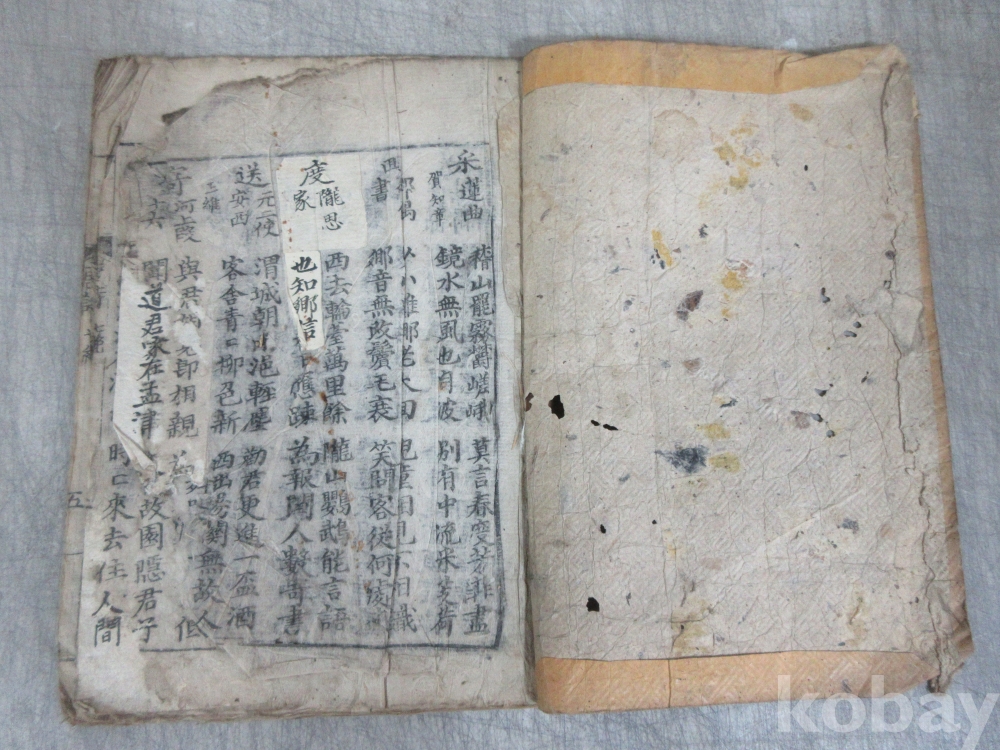 采蓮曲
賀知章
稽山罷霧鬱嵯峨 莫言春度芳菲盡
鏡水無風也自波 別有中流采芰荷
囬書
少小離鄉老大囬 兒童相見不相識
鄉音無改鬢毛衰 笑問客從何處
度隴思家
西去輪臺萬里餘 隴山鸚鵡能言語
也知鄉信應疎 為報閨人數尚書
送元二使安西
王維
渭城朝雨浥輕塵 勸君更進一盃酒
客舍青〻柳色新 西出陽關無故人
與君 相親
聞道君家在孟津
故園隱君子
時〻來去住人間
五
kobay